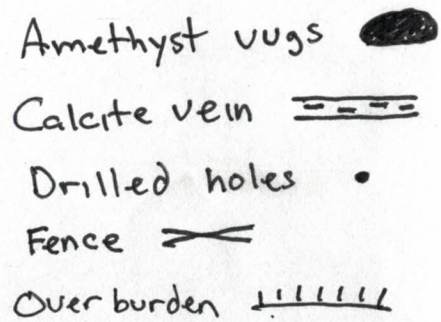 Amethyst vugs
Calcite vein
Drilled holes
Fence
Overburden